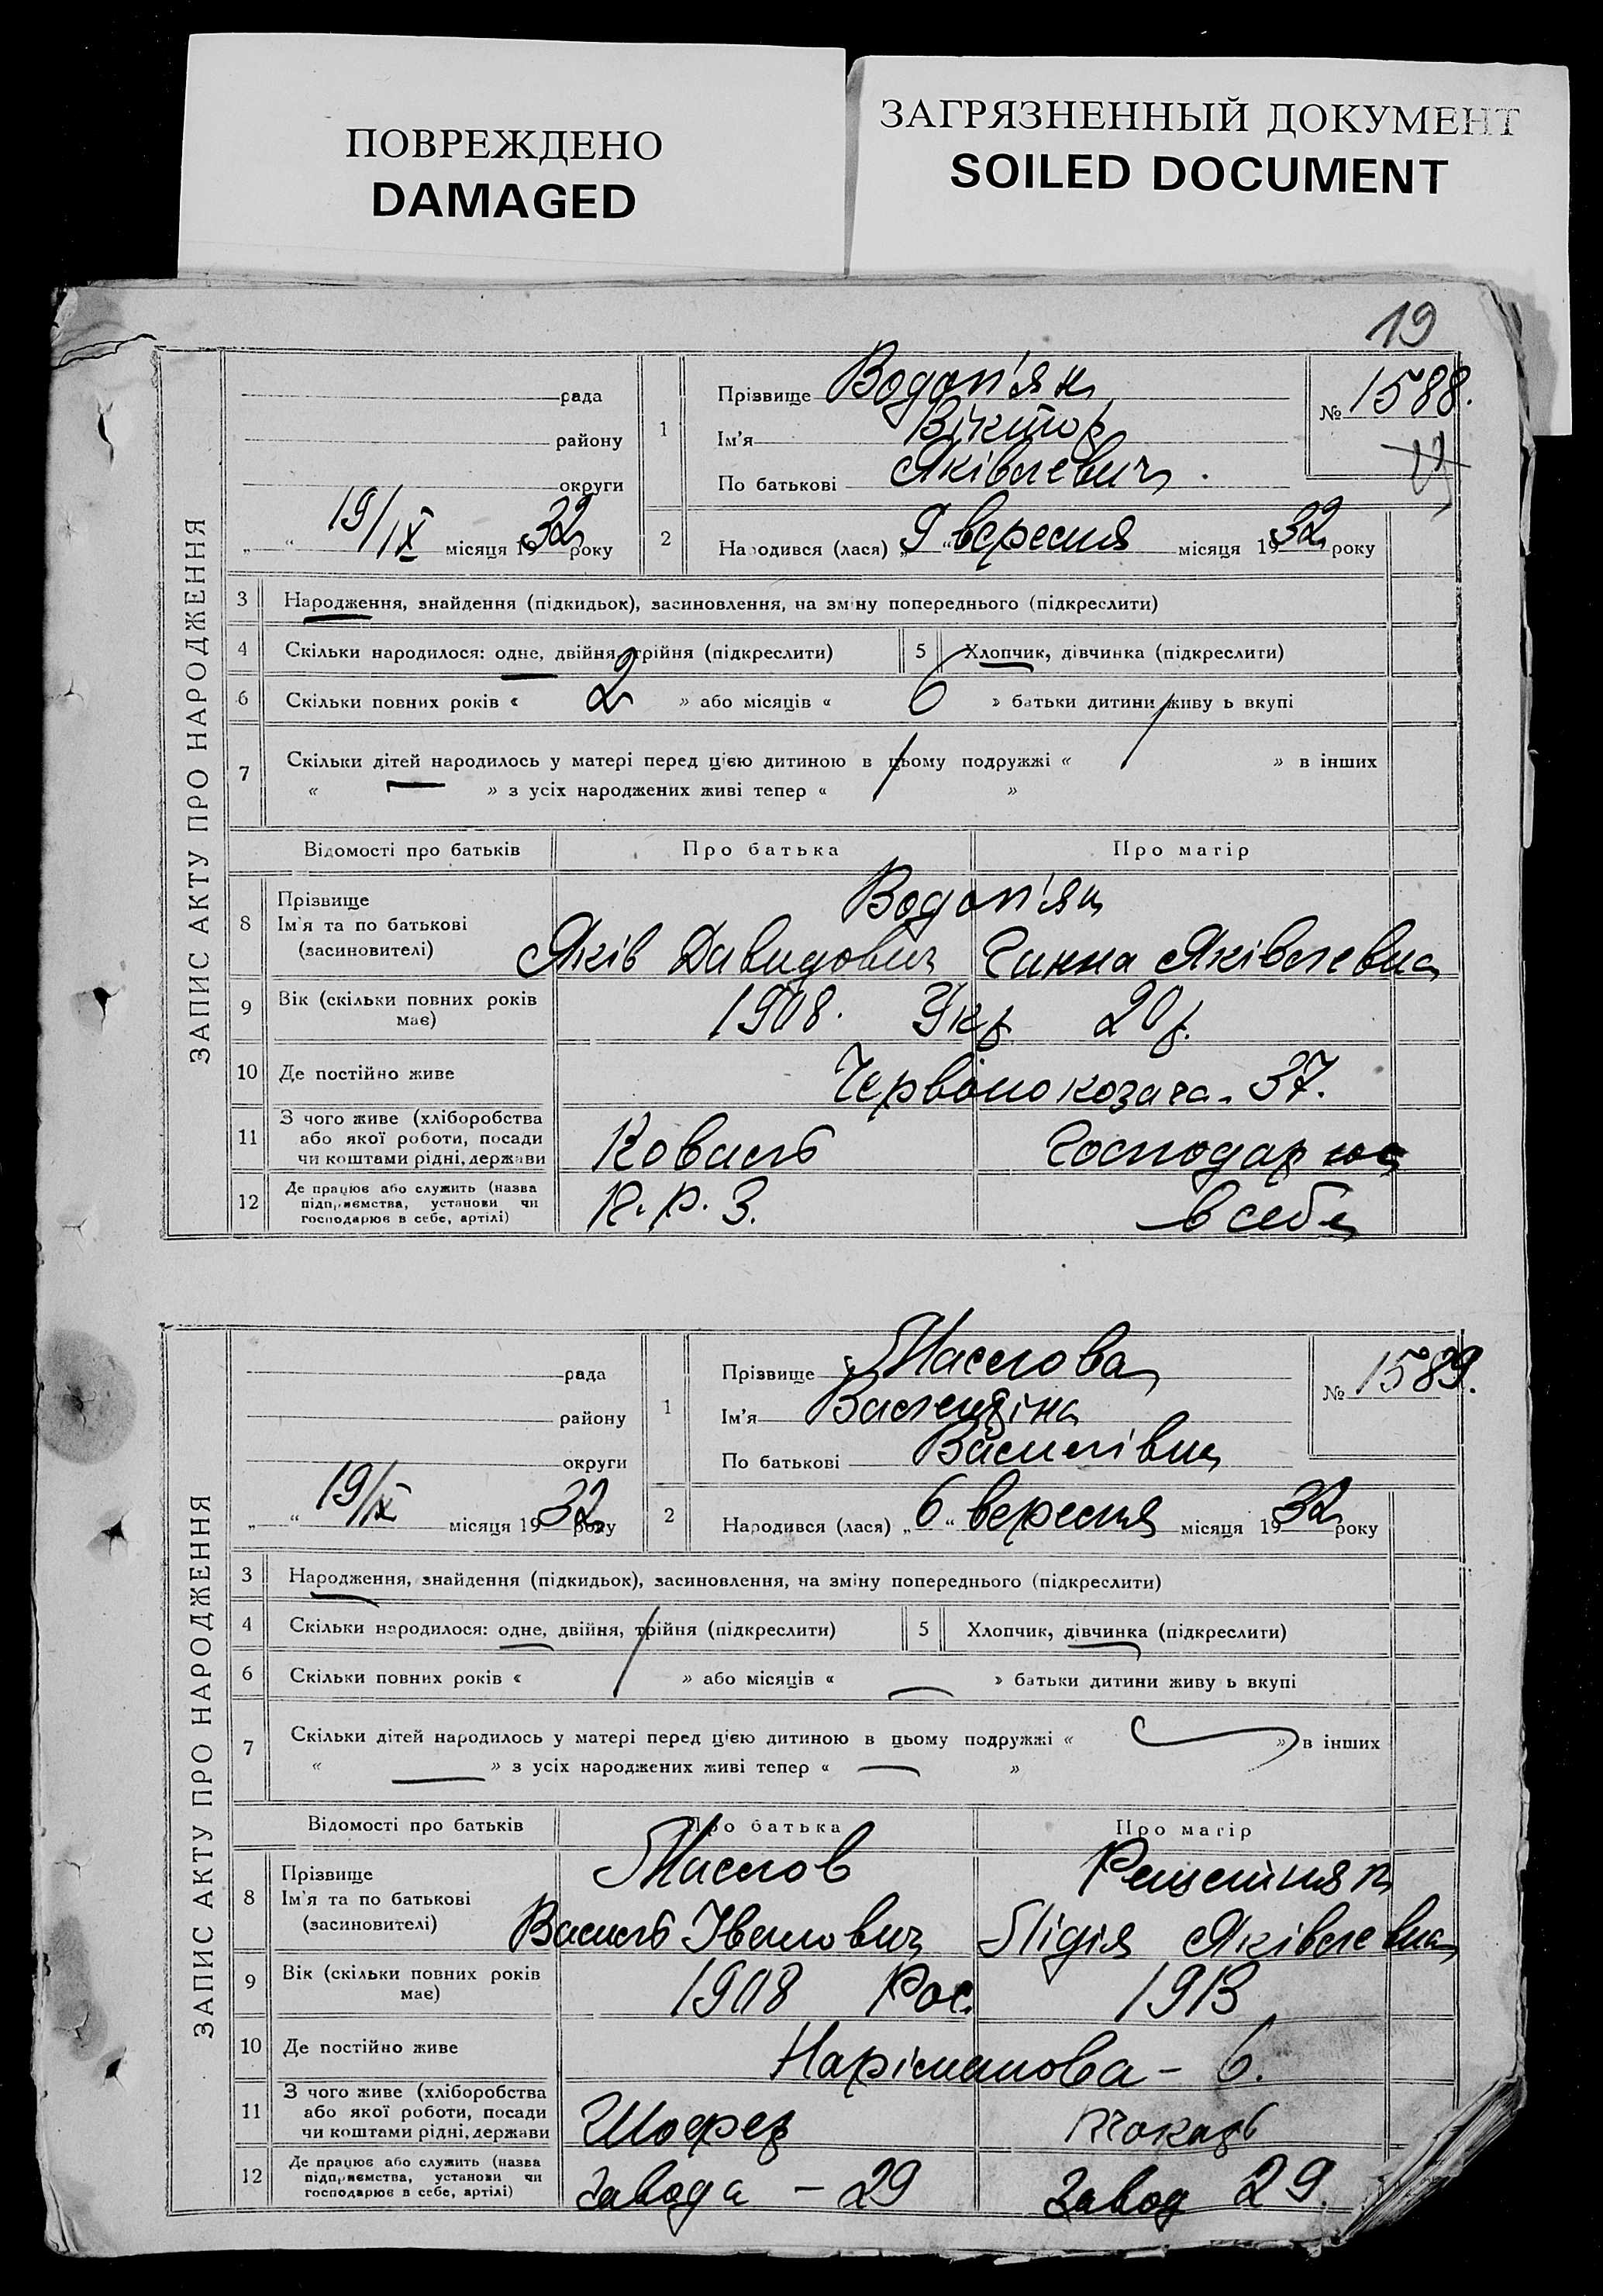 ПОВРЕЖДЕНО
DAMAGED
ЗАГРЯЗНЕННЫЙ ДОКУМЕНТ
SOILED DOCUMENT
19
ЗАПИС АКТУ ПРО НАРОДЖЕННЯ
рада
району
округи
„ “ 19/IX місяця 1932 року
1
Прізвище Водоп'ян
Ім'я Віктор
По батькові Яківлевич.
№ 1588.
2
Народився (лася) „9“ вересня місяця 1932 року
3 Народження, знайдення (підкидьок), засиновлення, на зміну попереднього (підкреслити)
4 Скільки народилося: одне, двійня, трійня (підкреслити) 5 Хлопчик, дівчинка (підкреслити)
6 Скільки повних років « 2 » або місяців « 6 » батьки дитини живуть вкупі
7 Скільки дітей народилось у матері перед цією дитиною в цьому подружжі « » в інших
« — » з усіх народжених живі тепер « »
Відомості про батьків Про батька Про матір
8 Прізвище Водоп'ян
Ім'я та по батькові
(засиновителі) Яків Давидович Ганна Яківлевна
9 Вік (скільки повних років має) 1908. Укр. 20 р.
10 Де постійно живе Червоно козача - 37.
11 З чого живе (хліборобства
або якої роботи, посади
чи коштами рідні, держави Коваль Господарює
12 Де працює або служить (назва
підприємства, установи чи
господарює в себе, артілі) К.Р.З. в себе
ЗАПИС АКТУ ПРО НАРОДЖЕННЯ
рада
району
округи
„ “ 19/IX місяця 1932 року
1
Прізвище Маслова
Ім'я Валентіна
По батькові Василівна
№ 1589.
2
Народився (лася) „6“ вересня місяця 1932 року
3 Народження, знайдення (підкидьок), засиновлення, на зміну попереднього (підкреслити)
4 Скільки народилося: одне, двійня, трійня (підкреслити) 5 Хлопчик, дівчинка (підкреслити)
6 Скільки повних років « » або місяців « — » батьки дитини живуть вкупі
7 Скільки дітей народилось у матері перед цією дитиною в цьому подружжі « — » в інших
« — » з усіх народжених живі тепер « — »
Відомості про батьків Про батька Про матір
8 Прізвище Маслов Решетняк
Ім'я та по батькові
(засиновителі) Василь Іванович Лідія Яківлевна
9 Вік (скільки повних років має) 1908 Рос. 1913
10 Де постійно живе Наріманова - 6.
11 З чого живе (хліборобства
або якої роботи, посади
чи коштами рідні, держави Шофер токарь
12 Де працює або служить (назва
підприємства, установи чи
господарює в себе, артілі) Завода - 29 Завод 29.